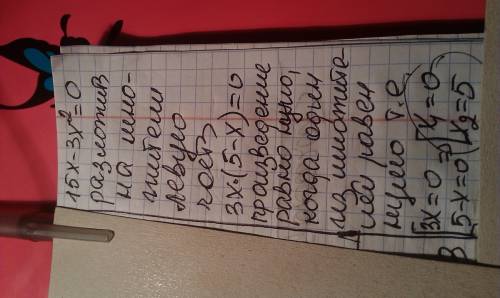 15x-3x²=0
разложив
на мно-
жители
левую
часть
3x·(5-x)=0
произведение
равно нулю,
когда один
из множите-
лей равен
нулю т.е
[3x=0 ⇒ [x₁=0
[5-x=0 [x₂=5